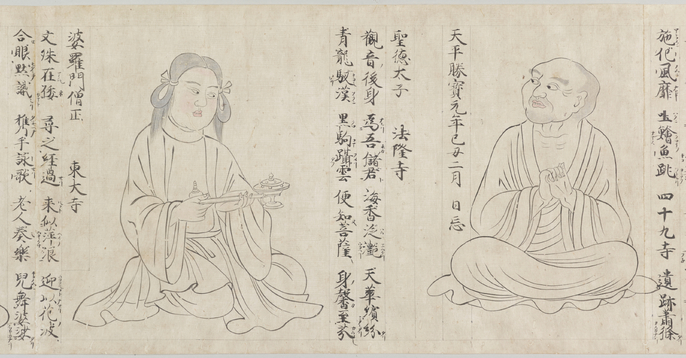 施化風靡 生鱠魚跳 四十九寺 遺跡蕭條
天平勝寶元年己丑二月 日忌
聖德太子 法隆寺
觀音後身 爲吾儲君 海香泛灩 天華繽紛
青龍馭漢 里駒躡雲 便知菩薩 身馨至芬
婆羅門僧正 東大寺
文殊在 尋之經過 來似萍浪 迎以花波
合眼默識 携手詠歌 老人奏樂 兒舞婆娑